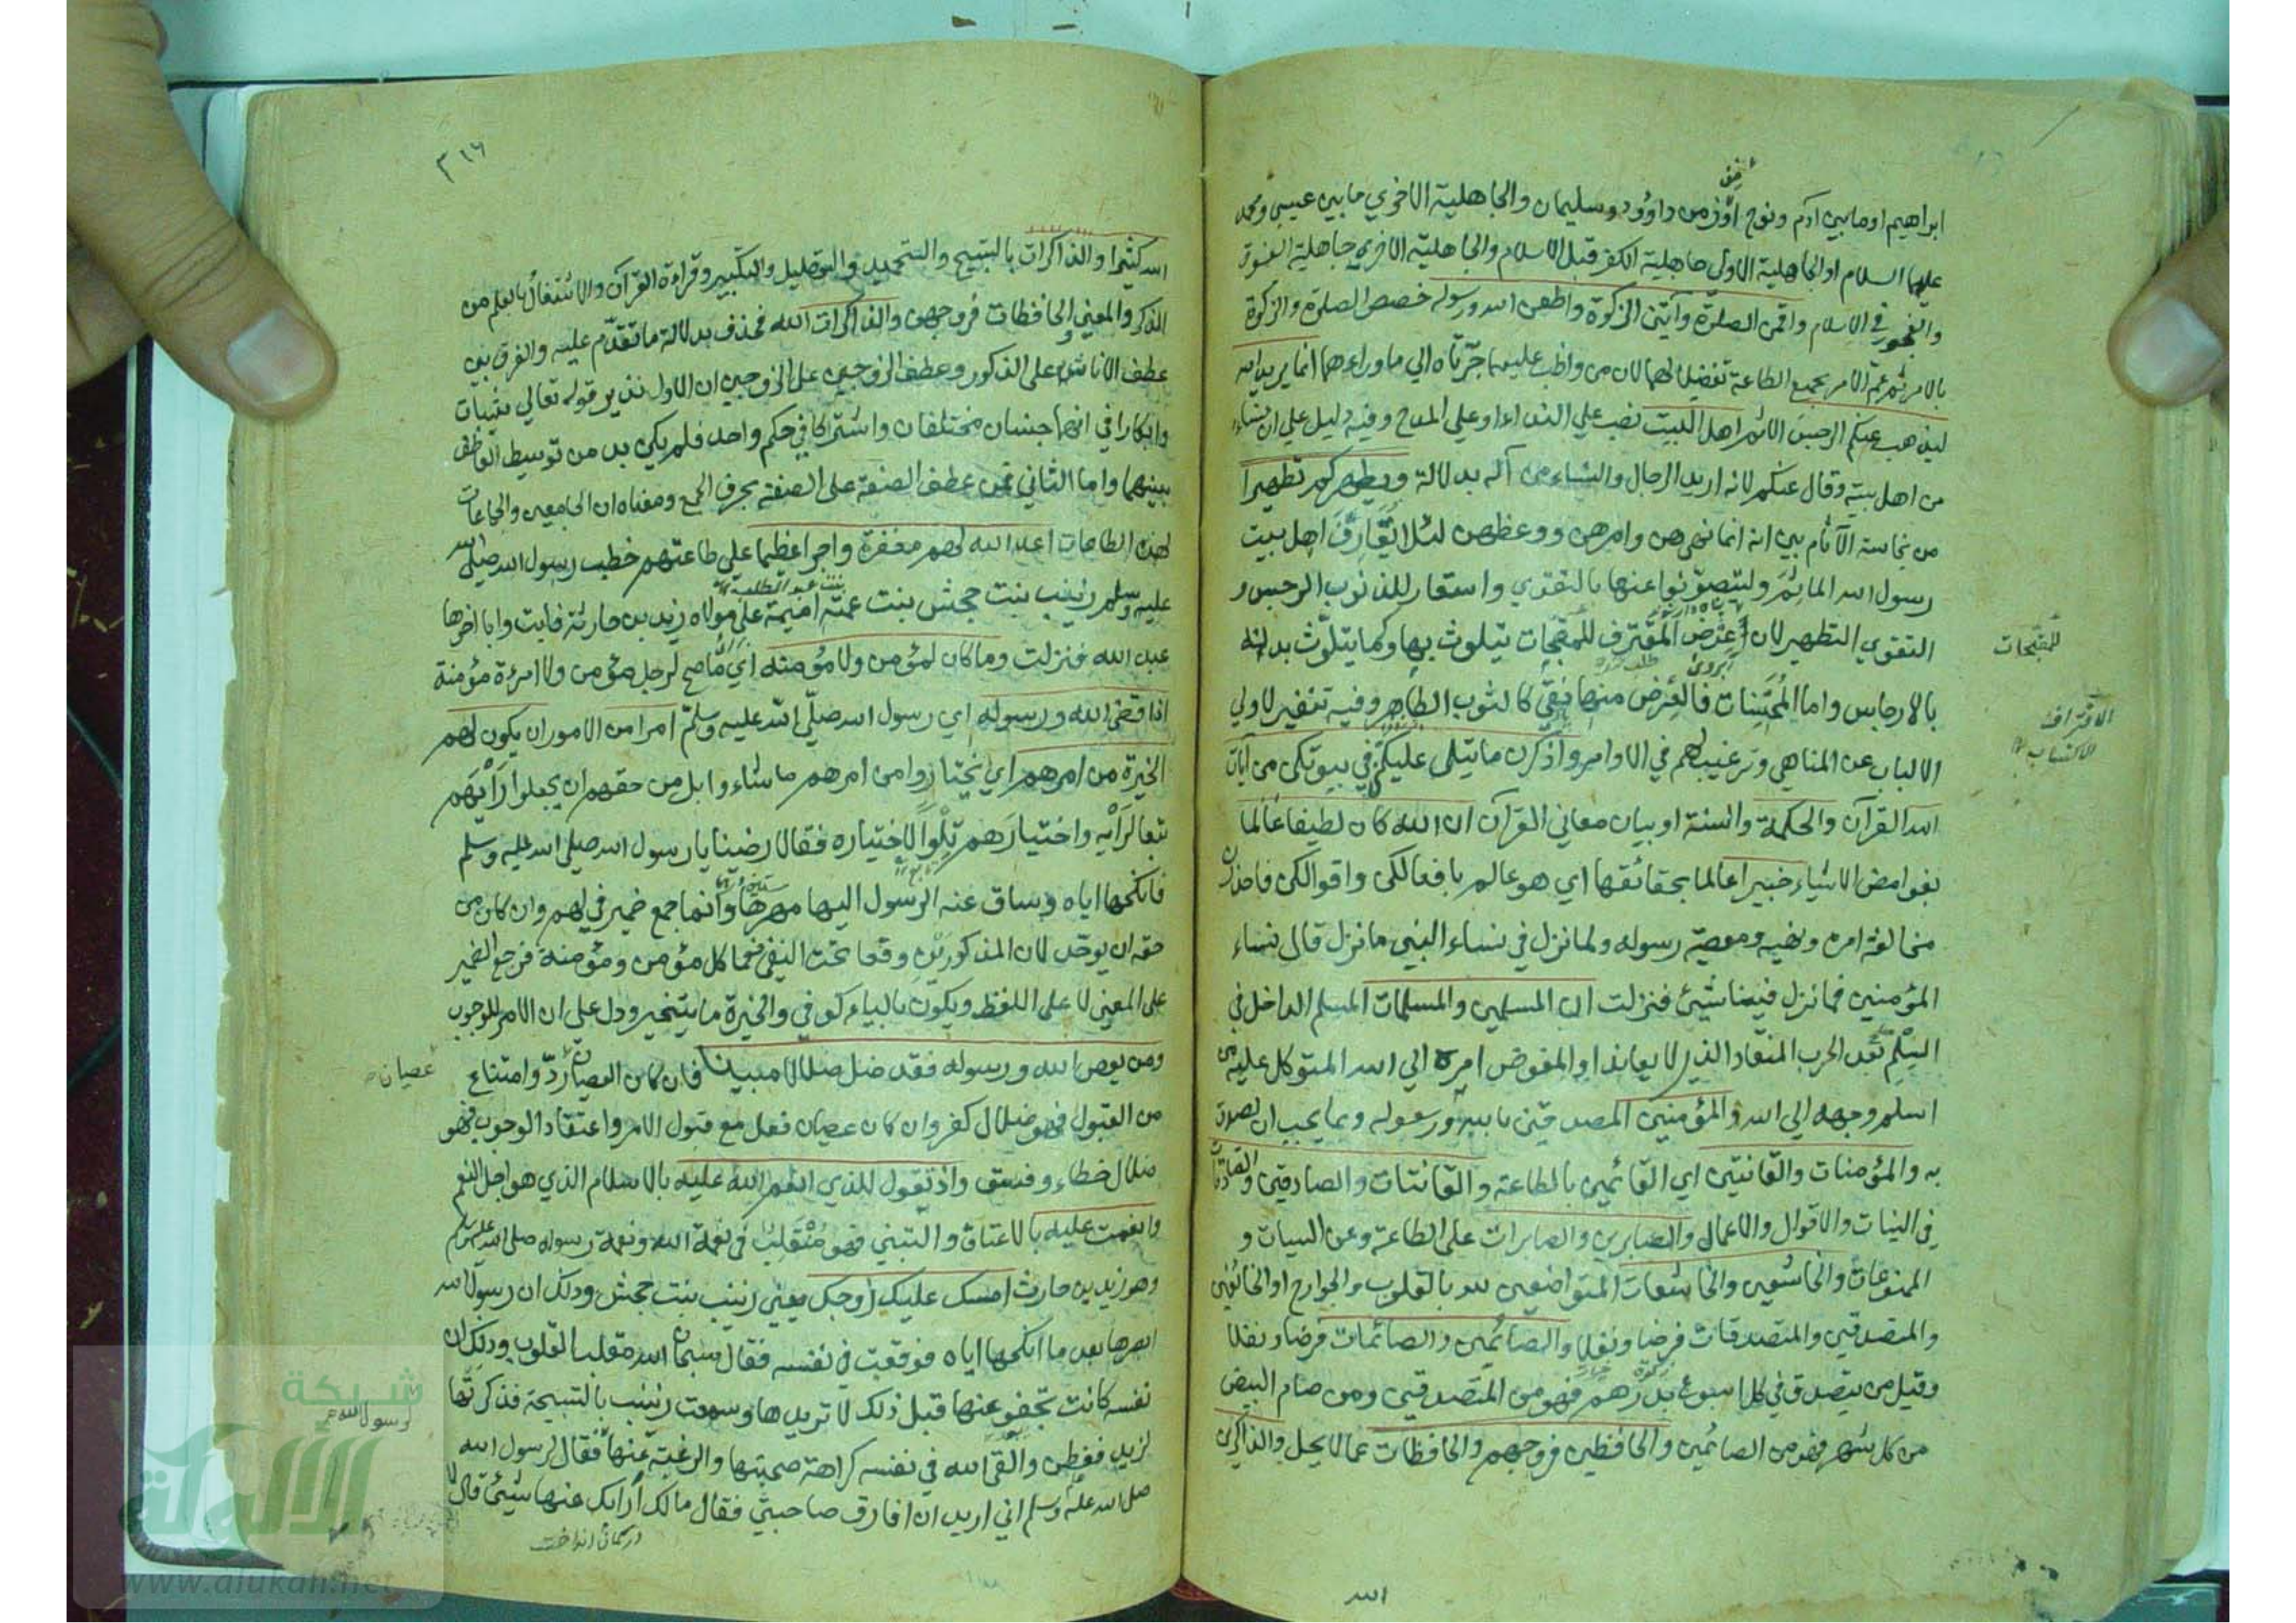 ابراهيم او ما بين ادم ونوح او زمن داوود وسليمان والجاهلية الاخري ما بين عيسي ومحمد
عليهما السلام او الجاهلية الاولي جاهلية الكفر قبل الاسلام والجاهلية الاخري جاهلية الفسوق
والفجور في الاسلام واقمن الصلوة وآتين الزكوة واطعن الله ورسوله خصص الصلوة والزكوة
بالامر ثم عم الامر بجميع الطاعة تفضيلا لهما لان من واظب عليهما جرتاه الي ما وراءهما انما يريد الله
ليذهب عنكم الرجس الاثم اهل البيت نصب علي النداء او علي المدح وفيه دليل علي ان نساءه
من اهل بيته وقال عنكم لانه اريد الرجال والنساء من آله بدلالة ويطهركم تطهيرا
من نجاسة الآثام بين انه انما نهيهن وامرهن ووعظهن لئلا يقارف اهل بيت
رسول الله المآثم وليتصونوا عنها بالتقوي واستعار للذنوب الرجس و
التقوي التطهير لان عرض المقترف للمقبحات يتلوث بها كما يتلوث بدنه
للمقبحات
بالارجاس واما المحسنات فالعرض منها نقي كالثوب الطاهر وفيه تنفير لاولي
الاقتراف
الاكتساب
الالباب عن المناهي وترغيب لهم في الاوامر واذكرن ما يتلي عليكن في بيوتكن من آيات
الله القرآن والحكمة والسنة او بيان معاني القرآن ان الله كان لطيفا عالما
بغوامض الاشياء خبيرا عالما بحقائقها اي هو عالم بافعالكن واقوالكن فاحذرن
مخالفة امره ونهيه ومعصية رسوله ولما نزل في نساء النبي ما نزل قال نساء
المؤمنين فما نزل فينا شيئ فنزلت ان المسلمين والمسلمات المسلم الداخل في
السلم بعد الحرب المنقاد الذي لا يعاند او المفوض امره الي الله المتوكل عليه من
اسلم وجهه الي الله والمؤمنين المصدقين بالله ورسوله وبما يجب ان يصدق
به والمؤمنات والقانتين اي القائمين بالطاعة والقانتات والصادقين والصادقات
في النيات والاقوال والاعمال والصابرين والصابرات علي الطاعة وعن السيات و
الممنوعات والخاشعين والخاشعات المتواضعين لله بالقلوب والجوارح او الخائفين
والمتصدقين والمتصدقات فرضا ونفلا والصائمين والصائمات فرضا ونفلا
وقيل من يتصدق في كل اسبوع بدرهم فهو من المتصدقين ومن صام البيض
من كل شهر فهو من الصائمين والحافظين فروجهم والحافظات عما لا يحل والذاكرين
الله
٣١٦
الله كثيرا والذاكرات بالتسبيح والتحميد والتهليل والتكبير وقراءة القرآن والاشتغال بالعلم من
الذكر والمعني والحافظات فروجهن والذاكرات الله فحذف بدلالة ما تقدم عليه والفرق بين
عطف الاناث علي الذكور وعطف الزوجين علي الزوجين ان الاول نظير قوله تعالي ثيبات
وابكارا في انهما جنسان مختلفان واشتركا في حكم واحد فلم يكن بد من توسيط العاطف
بينهما واما الثاني فمن عطف الصفة علي الصفة بحرف الجمع ومعناه ان الجامعين والجامعات
لهذه الطاعات اعد الله لهم مغفرة واجرا عظيما علي طاعتهم خطب رسول الله صلي الله
بنت عبد المطلب
عليه وسلم زينب بنت جحش بنت عمته اميمة علي مولاه زيد بن حارثة فابت وابا اخوها
عبد الله فنزلت وما كان لمؤمن ولا مؤمنة اي ما صح لرجل مؤمن ولا امرءة مؤمنة
اذا قضي الله ورسوله اي رسول الله صلي الله عليه وسلم امرا من الامور ان يكون لهم
الخيرة من امرهم اي يختاروا من امرهم ما شاءوا بل من حقهم ان يجعلوا رأيهم
تبعا لرأيه واختيارهم تلوا لاختياره فقالا رضينا يا رسول الله صلي الله عليه وسلم
فانكحها اياه وساق عنه الرسول اليها مهرها وانما جمع ضمير في لهم وان كان من
حقه ان يوحد لان المذكورين وقعا تحت النفي فعما كل مؤمن ومؤمنة فرجع الضمير
علي المعني لا علي اللفظ ويكون بالياء كوفي والخيرة ما يتخير ودل علي ان الامر للوجوب
ومن يعص الله ورسوله فقد ضل ضلالا مبينا فان كان العصيان رد وامتناع
عصيان
من القبول فهو ضلال كفر وان كان عصيان فعل مع قبول الامر واعتقاد الوجوب فهو
ضلال خطاء وفسق واذ تقول للذي انعم الله عليه بالاسلام الذي هو اجل النعم
وانعمت عليه بالاعتاق والتبني فهو متقلب في نعمة الله ونعمة رسوله صلي الله عليه وسلم
وهو زيد بن حارث امسك عليك زوجك يعني زينب بنت جحش وذلك ان رسول الله
ابصرها بعد ما انكحها اياه فوقعت في نفسه فقال سبحان الله مقلب القلوب وذلك ان
نفسه كانت تجفو عنها قبل ذلك لا تريدها وسمعت زينب بالتسبيحة فذكرتها
لزيد ففطن والقي الله في نفسه كراهة صحبتها والرغبة عنها فقال لرسول الله
صلي الله عليه وسلم اني اريد ان افارق صاحبتي فقال مالك ارابك عنها شيئ قال لا
در كمان انداخت
شبكة
الألوكة
www.alukah.net